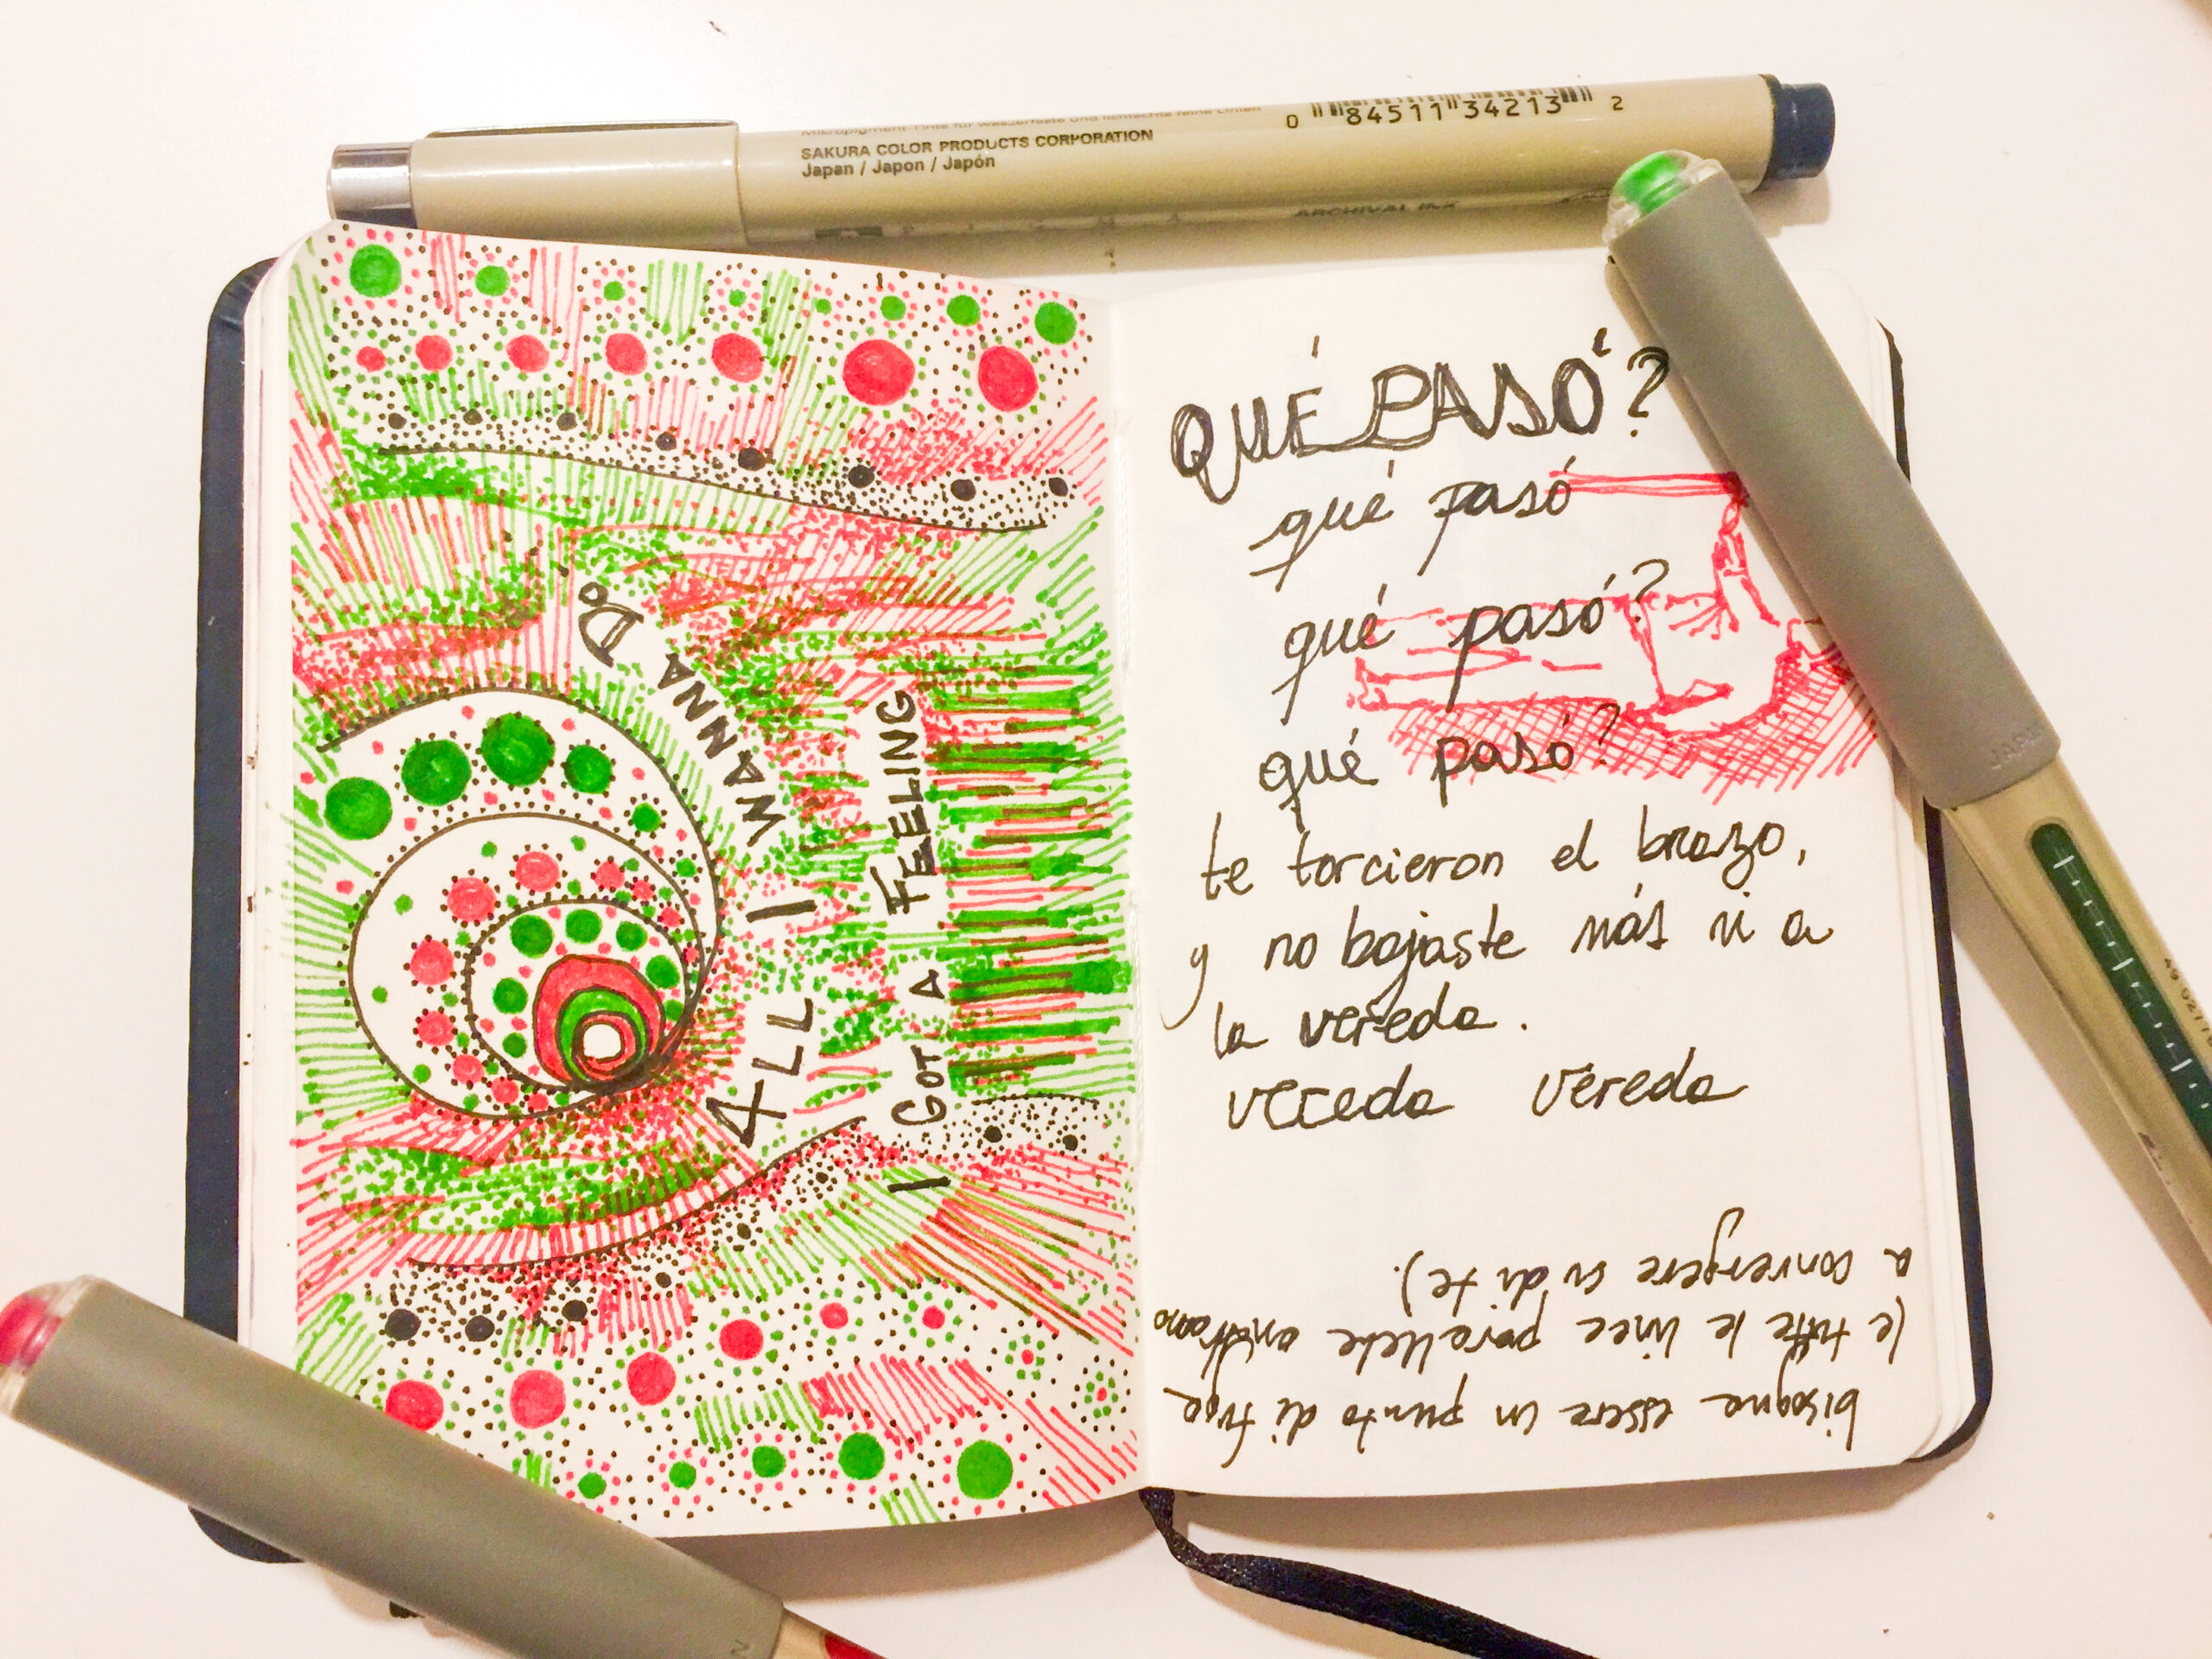 Mikropigment-Tinte für wasserfeste und lichtechte feine Linien
SAKURA COLOR PRODUCTS CORPORATION
Japan / Japon / Japón
0 84511 34213 2
ARCHIVAL INK
4LL I WANNA DO
I GOT A FEELING
QUÉ PASÓ?
qué pasó
qué pasó?
qué pasó?
te torcieron el brazo,
y no bajaste más ni a
la vereda.
vereda vereda
bisogna essere un punto di fuga
(e tutte le linee parallele andranno
a convergere su di te).
JAPAN